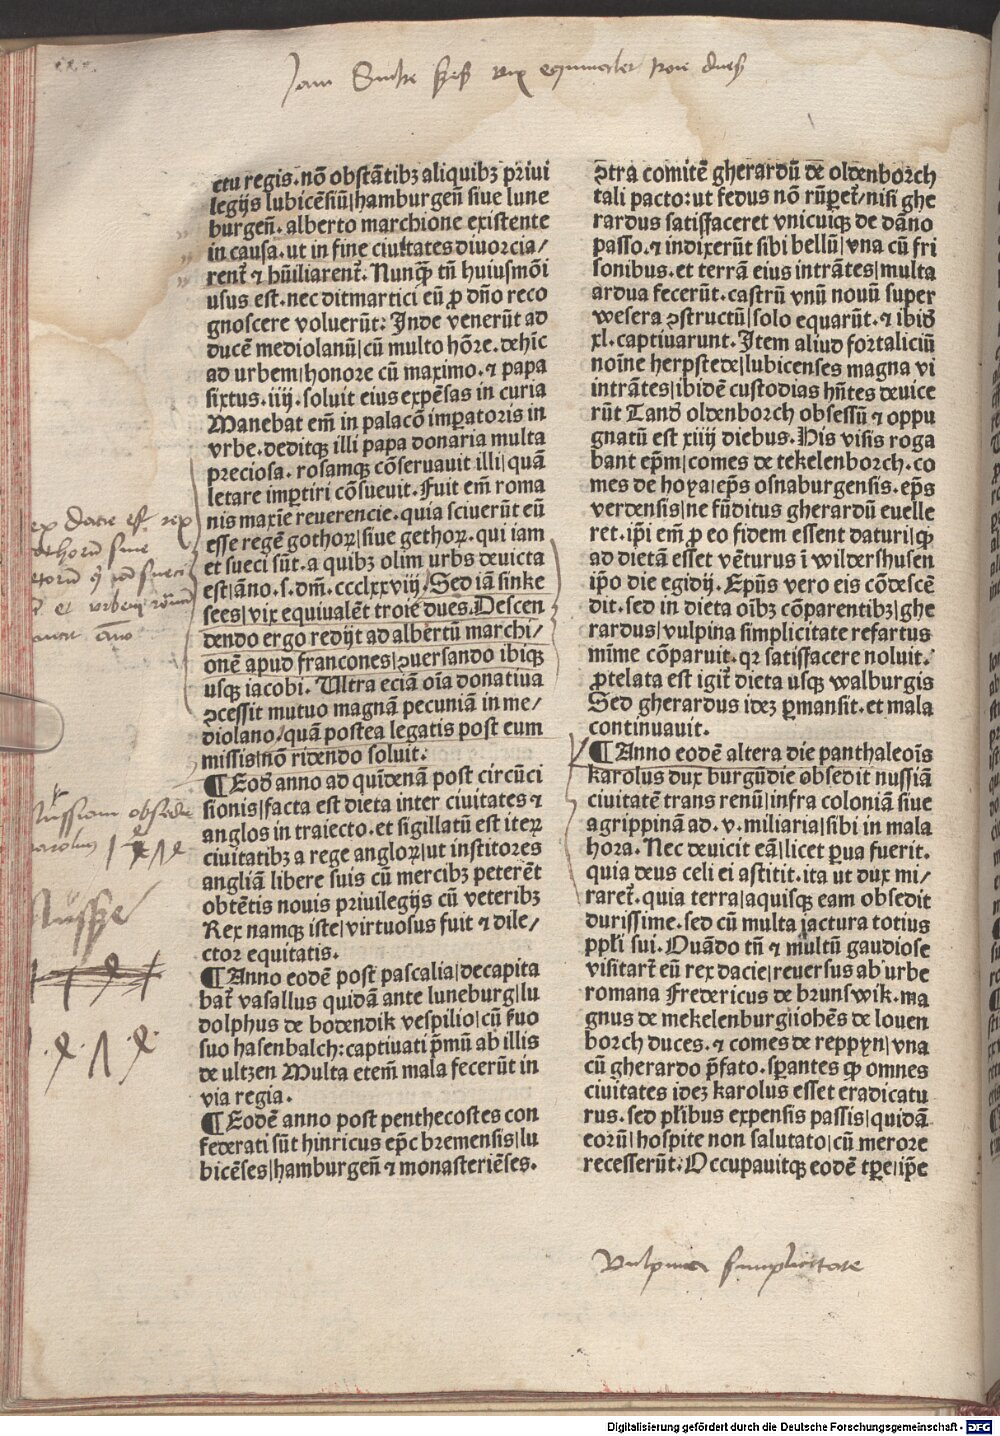 Jam Sincke sees vix equivalet troie dues
ctu regis. nō obstātibꝫ aliquibꝫ priui
legijs lubicēsiū|hamburgen̄ siue lune
burgen̄. alberto marchione existente
in causa. ut in fine ciuitates diuorcia/
rent̄ ⁊ hūiliarent̄. Nunq̄ꝫ tn̄ huiusmōi
usus est. nec ditmartici eū ꝓ dn̄o reco
gnoscere voluerūt: Inde venerūt ad
ducē mediolanū|cū multo hōre. dehīc
ad urbem|honore cū maximo. ⁊ papa
sixtus. iiij. soluit eius expēsas in curia
Manebat em̄ in palacō imꝑatoris in
vrbe. deditqꝫ illi papa donaria multa
preciosa. rosamqꝫ cōseruauit illi|quā
letare imꝑtiri cōsueuit. Fuit em̄ roma
nis maxīe reuerencie. quia sciuerūt eū
esse regē gothoꝝ|siue gethoꝝ. qui iam
et sueci sūt. a quibꝫ olim urbs deuicta
est|āno. s. dm̄. ccclxxviij. Sed iā sinke
sees|vix equiualēt troie dues. Descen
dendo ergo redijt ad albertū marchi/
onē apud francones|ꝯuersando ibiqꝫ
usqꝫ iacobi. Ultra eciā oīa donatiua
ꝯcessit mutuo magnā pecuniā in me/
diolano/quā postea legatis post eum
missis|nō ridendo soluit.
¶ Eod̄ anno ad quīdenā post circūci
sionis|facta est dieta inter ciuitates ⁊
anglos in traiecto. et sigillatū est iteꝝ
ciuitatibꝫ a rege angloꝝ|ut institores
angliā libere suis cū mercibꝫ peterēt
obtētis nouis priuilegijs cū veteribꝫ
Rex namqꝫ iste|virtuosus fuit ⁊ dile/
ctor equitatis.
¶ Anno eodē post pascalia|decapita
bat̄ vasallus quidā ante luneburg|lu
dolphus de bodendik vespilio|cū s̄uo
suo hasenbalch: captiuati p̄mū ab illis
de ultzen Multa etem̄ mala fecerūt in
via regia.
¶ Eodē anno post penthecostes con
federati sūt hinricus ep̄c bremensis|lu
bicēses|hamburgen̄ ⁊ monasteriēses.
ꝯtra comitē gherardū de oldenborch
tali pacto: ut fedus nō rūꝑet̄/nisi ghe
rardus satisfaceret vnicuiqꝫ de dāno
passo. ⁊ indixerūt sibi bellū|vna cū fri
sonibus. et terrā eius intrātes|multa
ardua fecerūt. castrū vnū nouū super
wesera ꝯstructū|solo equarūt. ⁊ ibid̄
xl. captiuarunt. Item aliud fortaliciū
noīne herpstede|lubicenses magna vi
intrātes|ibidē custodias hn̄tes deuice
rūt Tand̄ oldenborch obsessū ⁊ oppu
gnatū est xiiij diebus. His visis roga
bant ep̄m|comes de tekelenborch. co
mes de hoya|ep̄s osnaburgensis. ep̄s
verdensis|ne fūditus gherardū euelle
ret. ip̄i em̄ ꝓ eo fidem essent daturi|qꝙ
ad dietā esset vēturus ī wildershusen
ip̄o die egidij. Ep̄us vero eis cōdescē
dit. sed in dieta oībꝫ cōparentibꝫ|ghe
rardus|vulpina simplicitate refartus
mīme cōparuit. qꝛ satisfacere noluit.
ꝓtelata est igit̄ dieta usqꝫ walburgis
Sed gherardus idez ꝑmansit. et mala
continuauit.
¶ Anno eodē altera die panthaleoīs
karolus dux burgūdie obsedit nussiā
ciuitatē trans renū|infra coloniā siue
agrippinā ad. v. miliaria|sibi in mala
hora. Nec deuicit eā|licet ꝑua fuerit.
quia deus celi ei astitit. ita ut dux mi/
raret̄. quia terra|aquisqꝫ eam obsedit
durissime. sed cū multa iactura totius
pp̄li sui. Quādo tn̄ ⁊ multū gaudiose
visitart̄ eū rex dacie|reuersus ab urbe
romana Fredericus de brunswik. ma
gnus de mekelenburg|iohēs de louen
borch duces. ⁊ comes de reppyn|vna
cū gherardo p̄fato. sꝑantes qꝙ omnes
ciuitates idez karolus esset eradicatu
rus. sed pl̄ibus expensis passis|quidā
eorū|hospite non salutato|cū merore
recesserūt: Occupauitqꝫ eodē tꝑe|ip̄e
rex dacie est rex
Nussiam obsedit
karolus
Nussze
Vulpina simplicitate
Digitalisierung gefördert durch die Deutsche Forschungsgemeinschaft - DFG